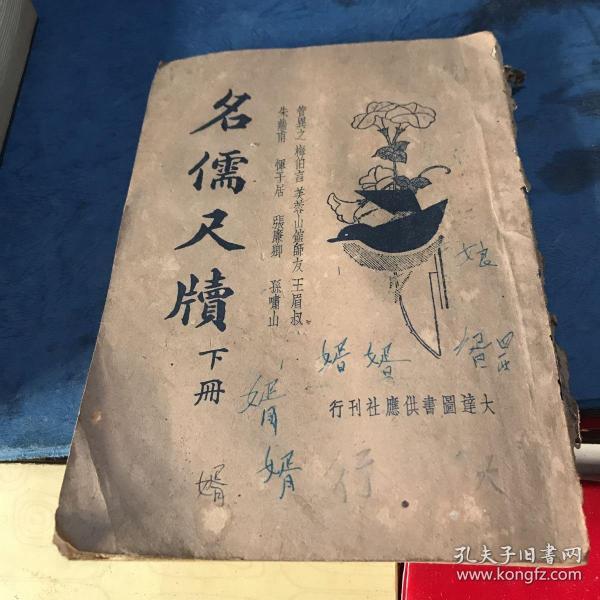 名儒尺牘
下冊
管異之 梅伯言 姜
山館師友 王眉叔
朱
甫 惲子居 張廉卿 孫嘯山
大達圖書供應社刊行
娘
婿 婿 婿
婿
婿
婿
行
孔夫子旧书网
www.kongfz.com